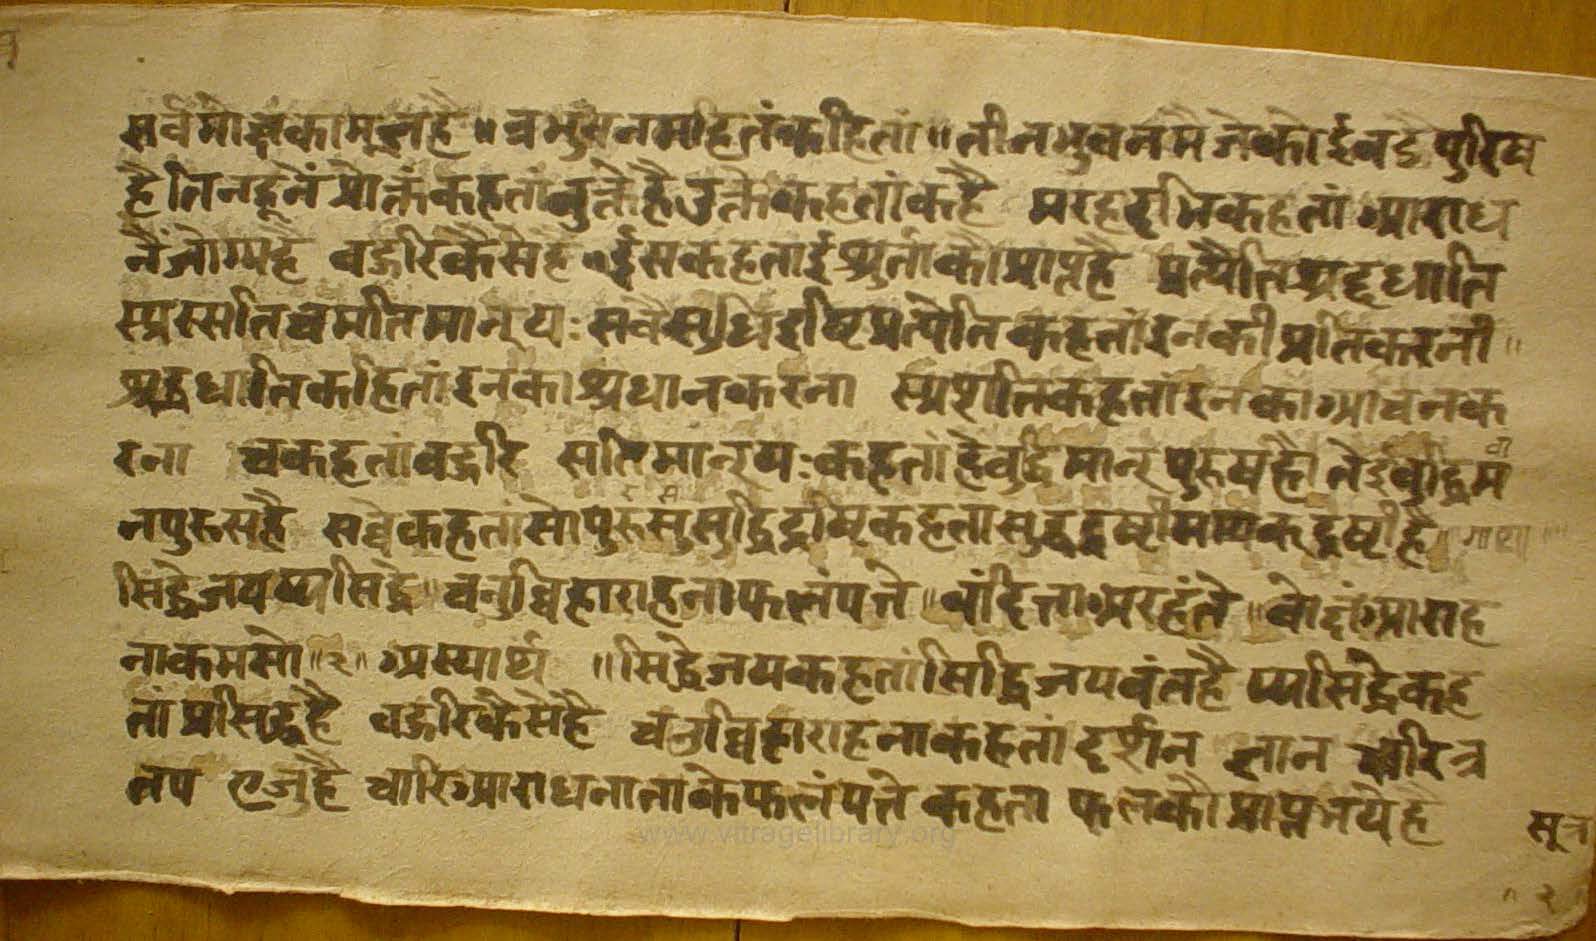 सर्वमोक्षकामूलहै ॥ त्रभुवनमहितंकहितां ॥ तीनभुवनमैजेकोईवडेपुरिष
हैतिनहूनें प्रोक्तंकहतांवुक्तेहैउक्तेकहतांकहै अरहद्भिकहतां आराध
नैंजोग्यहै वहुरिकैसेहै ईसकहताईश्रुताकौप्राप्तहै प्रत्येतिश्रद्दधाति
स्प्रस्सतिचमतिमान्यः सवैसुधिद्रष्टिप्रत्येतिकहतांइनकीप्रतिकरनी ॥
श्रद्दधातिकहितांइनकाश्रधानकरना स्प्रशतिकहतांइनकाआचनक
रना चकहतांवहुरि मतिमान्यःकहतांहैवुद्धिमान्पुरुषहै तेइवुद्धिम
नपुरुसहै सवैकहतांसोपुरुससुद्धिद्रष्टिकहतासुद्धद्रष्टीसम्यकद्रष्टीहै ॥ गाथा ॥
सिद्धेजयप्पसिद्धे ॥ चउव्विहाराहनाफलंपत्ते ॥ वंदित्ताअरहंते ॥ वोछंआराह
नाकमसो ॥२॥ अस्यार्थ ॥ सिद्धेजयकहतांसिद्धिजयवंतहै प्पसिद्धेकह
तांप्रसिद्धहै वहुरिकैसेहै चउव्विहाराहनाकहतां दर्शन ज्ञान चारित्र
तप एजुहै चारिआराधनाताकेफलंपत्ते कहता फलकौप्राप्तभयेहै
सूत्र
२
www.vitragelibrary.org